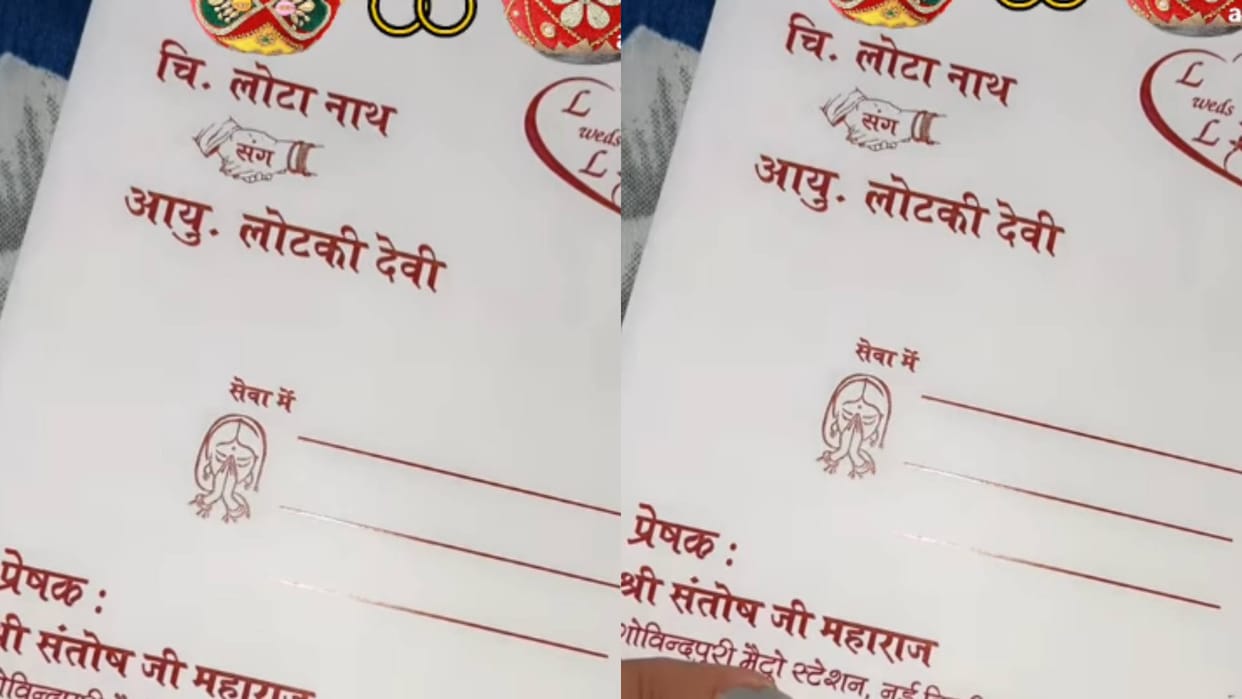 चि. लोटा नाथ
संग
आयु. लोटकी देवी
L
weds
L
सेवा में
प्रेषक :
श्री संतोष जी महाराज
चि. लोटा नाथ
संग
आयु. लोटकी देवी
L
weds
L
सेवा में
प्रेषक :
श्री संतोष जी महाराज
गोविन्दपुरी मैट्रो स्टेशन, नई